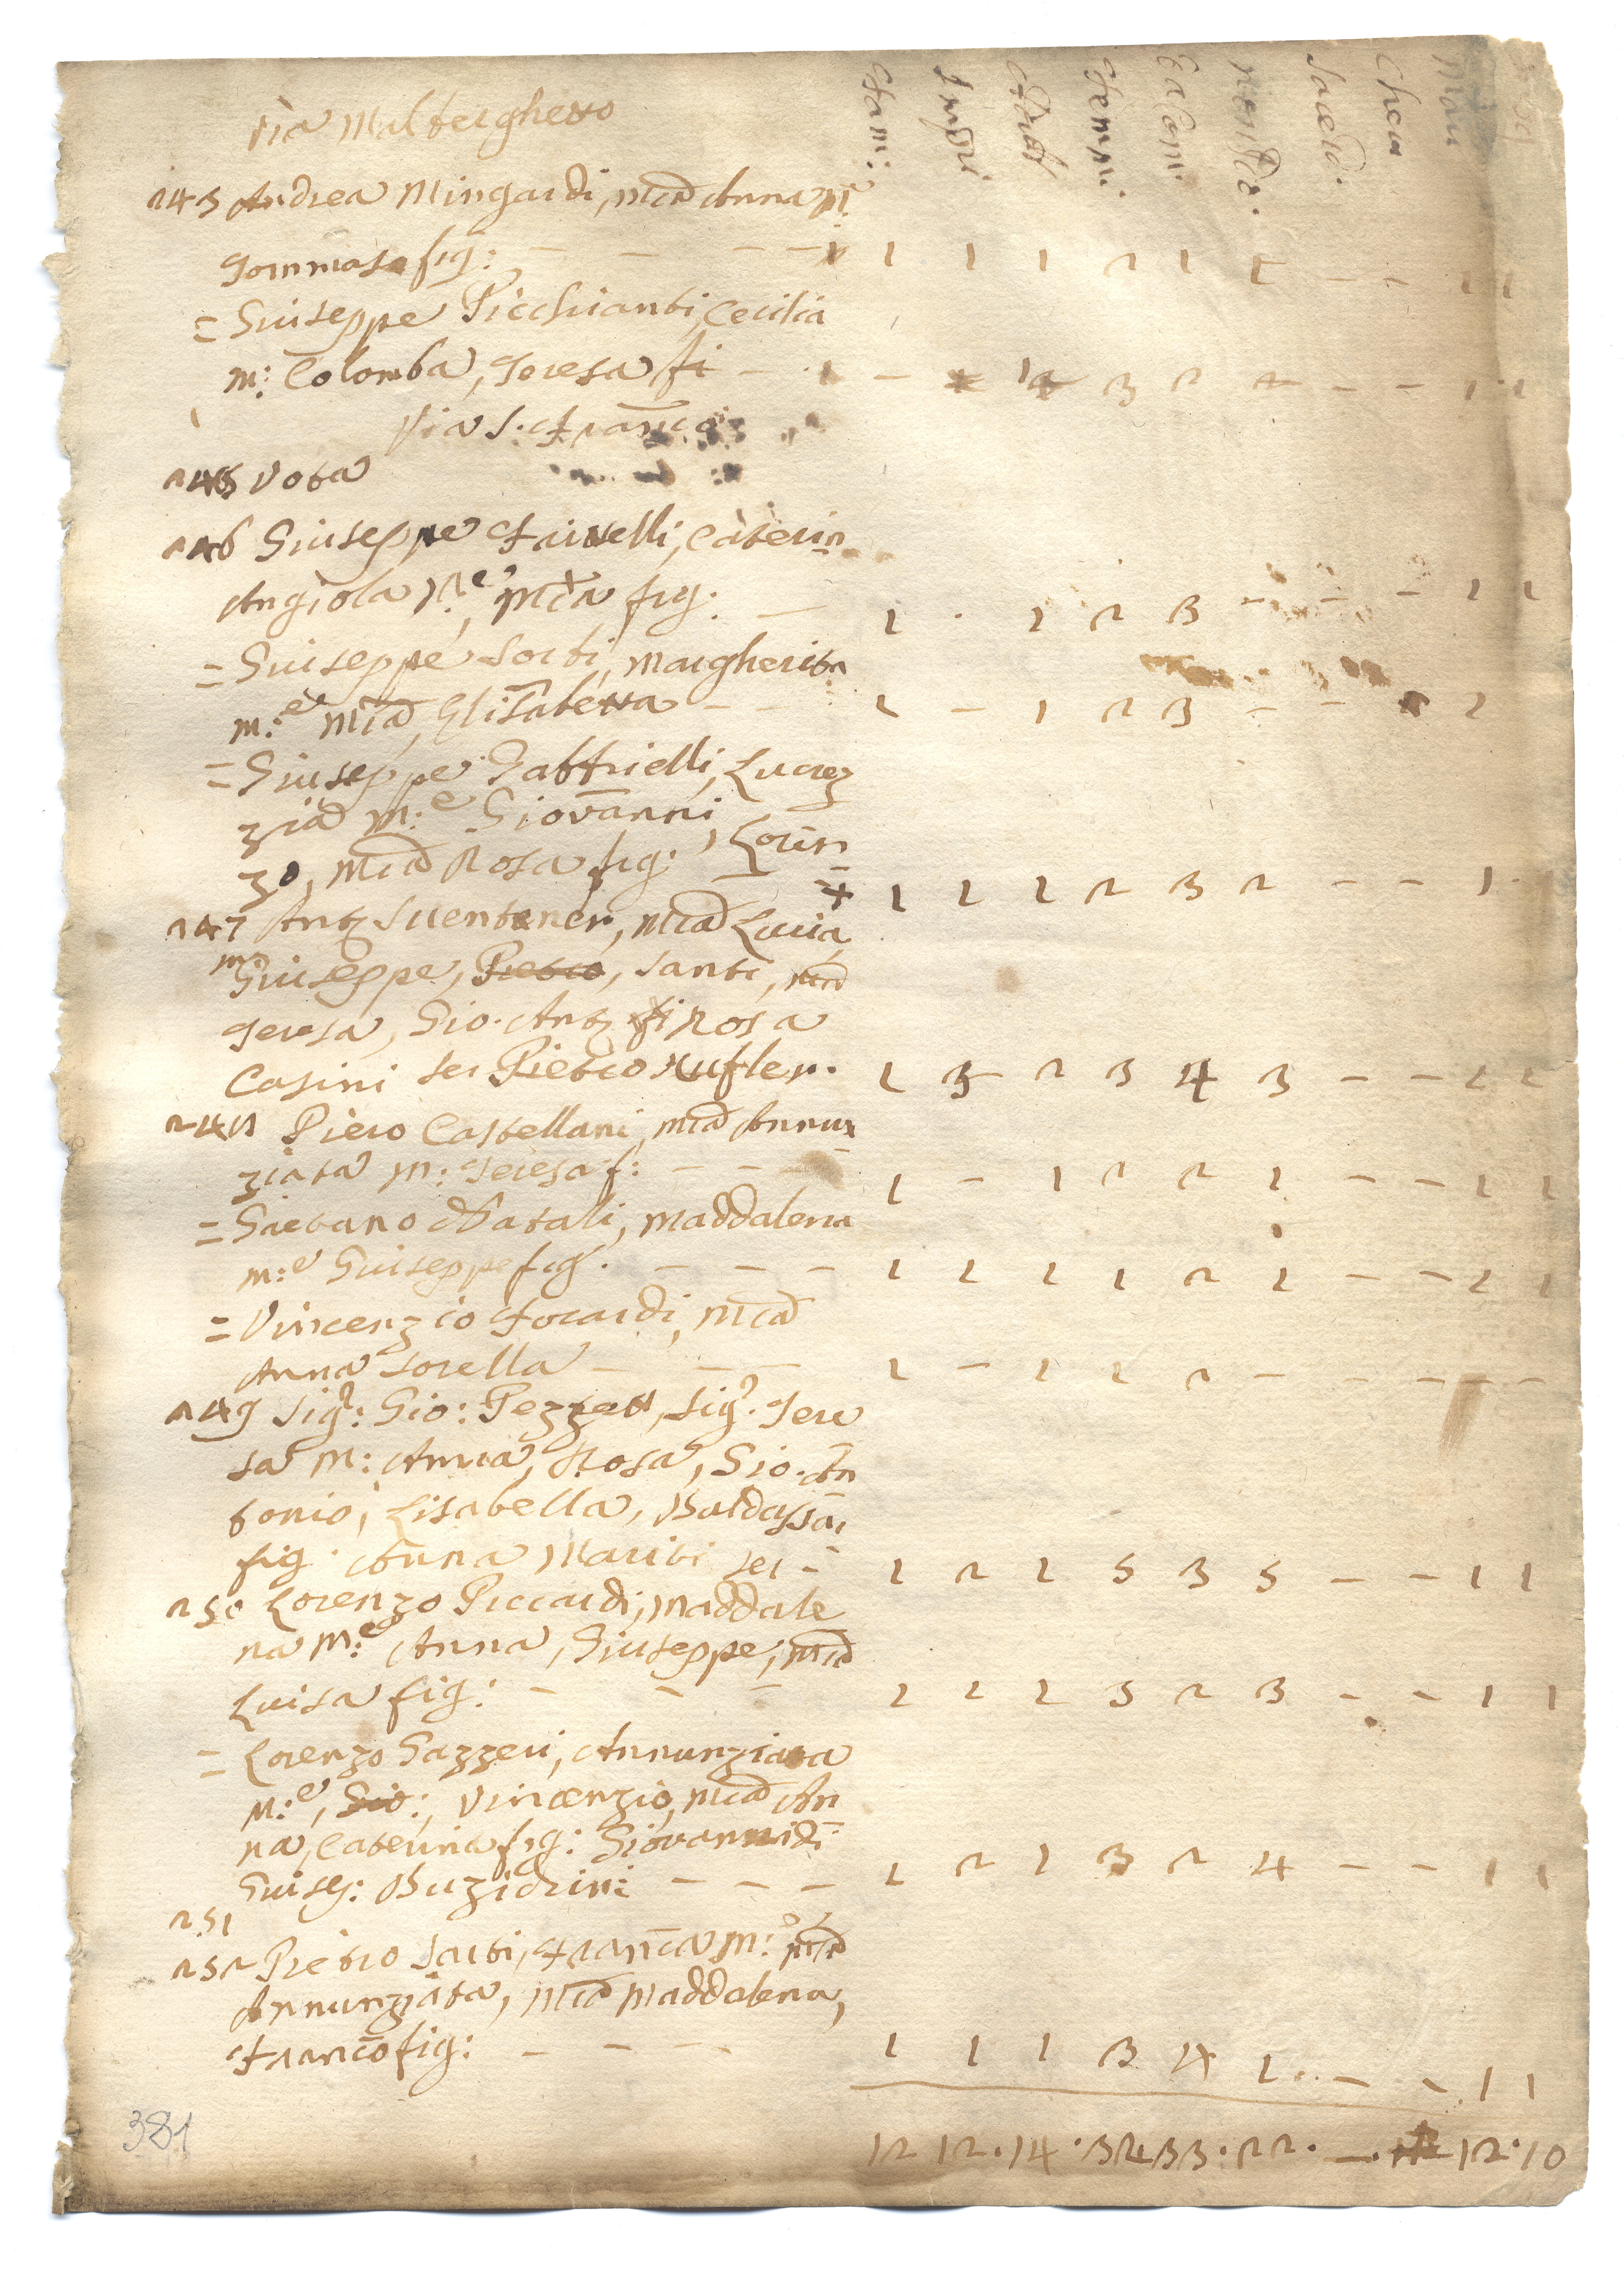 Stam: Impu Adul Femm: Ea Com: non Co: Sacerd: Cher Mari
Via Malborghetto
243 Andrea Mingardi, Mria Anna M:
Tommaso fig: — — — — 1 1 1 2 1 1 — — 1 1
= Giuseppe Picchianti, Cecilia
m: Colomba, Teresa fi — 1 — 3 2 — — 1 1
Via S. Franco
245 Vota
246 Giuseppe Fainelli, Caterin
Angiola M:e Mria fig: — 1 . 1 2 3 — — — 1 1
= Giuseppe Sorbi, Margherita
m:e Mria, Elisabetta — — 1 — 1 2 3 — — 1
= Giuseppe Gabbrielli, Lucrez
zia m:e Giovanni, Loren
zo, Mria Rosa fig: 1 1 1 2 3 2 — — 1 1
247 Ant. Suentener, Mria Lucia
m Giuseppe, Pietro, Santi, Mria
Teresa, Gio. Ant. fi Rosa
Casini ser Pietro Nufler. 1 3 2 3 4 3 — — 1 1
248 Piero Castellani, Mria Annun
ziata m: Teresa f: — — — 1 — 1 2 2 1 — — 1 1
= Gaetano Natali, Maddalena
m:e Giuseppe fig. — — — 1 1 1 1 2 1 — — 1 1
= Vincenzio Focardi, Mria
Anna sorella — — — 1 — 1 1 2 — — — — —
249 Sigr: Gio: Pezzati, Sigr. Tere
sa m: Anna, Rosa, Gio. An
tonio, Lisabella, Baldassar
fig. Anna Mariti ser — 1 2 1 5 3 5 — — 1 1
250 Lorenzo Piccardi, Maddale
na m:e Anna, Giuseppe, Mria
Luisa fig: — — — 1 1 1 3 2 3 — — 1 1
= Lorenzo Gazzeri, Annunziata
m:e, Gio:, Vincenzio, Mria An
na, Caterina fig: Giovanni di
Giusep: Buzichini — — — 1 2 1 3 2 4 — — 1 1
251
252 Pietro Sarti, Franca m:e Mria
Annunziata, Mria Maddalena,
Franco fig: — — — 1 1 1 3 4 1 — — 1 1
12 12. 14. 32 33. 22. — . 12. 10
381